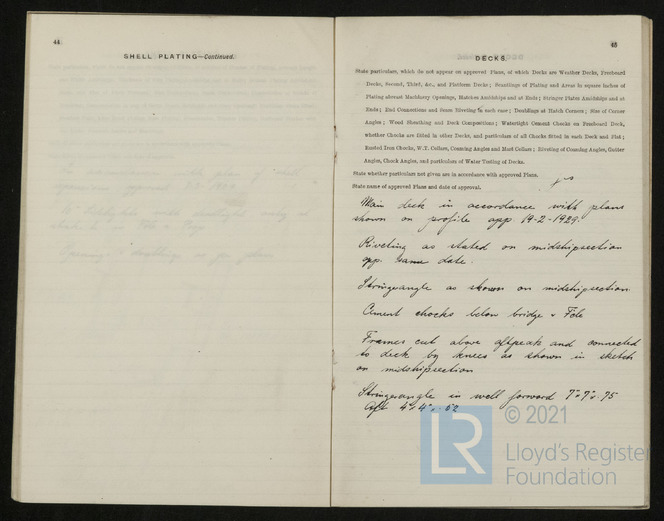 44
SHELL PLATING—Continued.
45
DECKS.
State particulars, which do not appear on approved Plans, of which Decks are Weather Decks, Freeboard
Decks, Second, Third, &c., and Platform Decks; Scantlings of Plating and Areas in square inches of
Plating abreast Machinery Openings, Hatches Amidships and at Ends; Stringer Plates Amidships and at
Ends; End Connections and Seam Riveting in each case; Doublings at Hatch Corners; Size of Corner
Angles; Wood Sheathing and Deck Compositions; Watertight Cement Chocks on Freeboard Deck,
whether Chocks are fitted in other Decks, and particulars of all Chocks fitted in each Deck and Flat;
Riveted Iron Chocks, W.T. Collars, Coaming Angles and Mast Collars; Riveting of Coaming Angles, Gutter
Angles, Chock Angles, and particulars of Water Testing of Decks.
State whether particulars not given are in accordance with approved Plans. yes
State name of approved Plans and date of approval.
Main deck in accordance with plans
shown on profile app. 19-2-1929.
Riveting as stated on midshipsection
app. same date.
Stringerangle as shown on midshipsection.
Cement chocks below bridge & Fcle
Frames cut above aftpeak and connected
to deck by knees as shown in sketch
on midshipsection
Stringerangle in well forward 7"x7"x.75
Aft 4"x4"x.52
LR
© 2021
Lloyd's Register
Foundation